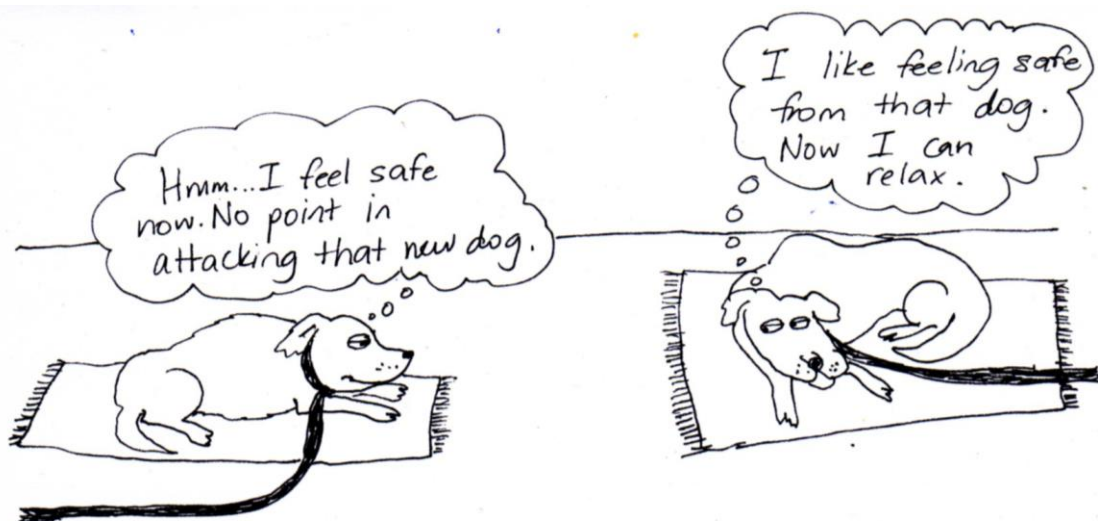 Hmm...I feel safe
now. No point in
attacking that new dog.
I like feeling safe
from that dog.
Now I can
relax.